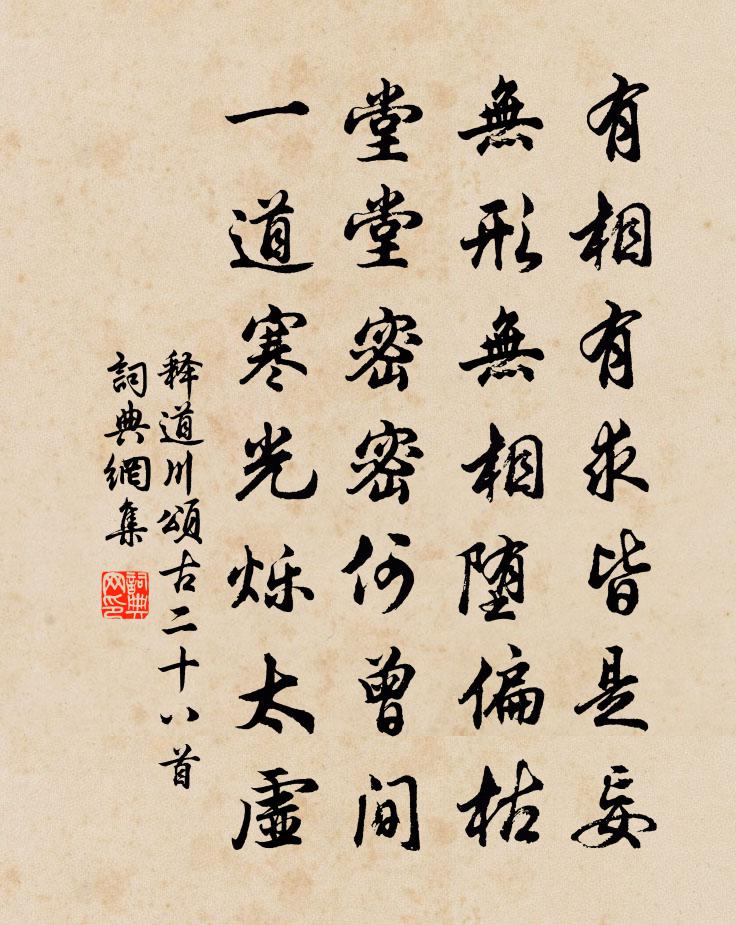 有相有求皆是妄
無形無相堕偏枯
堂堂密密何曾间
一道寒光烁太虚
释道川頌古二十八首
詞典網集
詞典网印